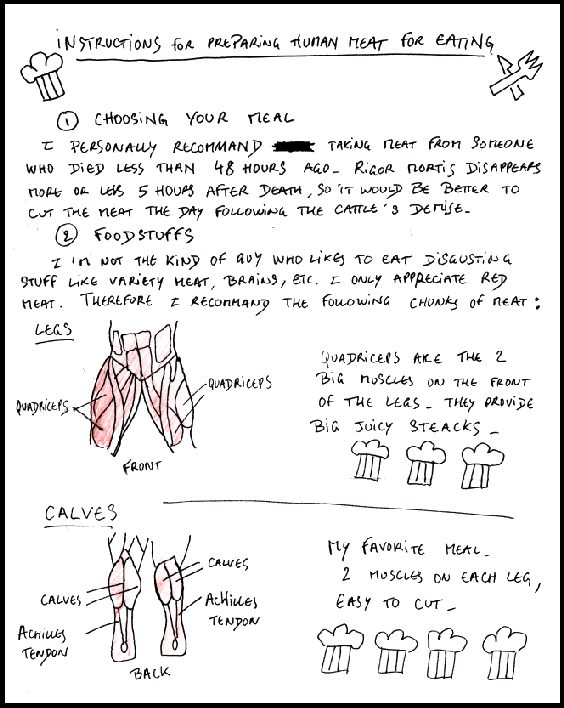 INSTRUCTIONS for PREPARING HUMAN MEAT FOR EATING
1 CHOOSING YOUR MEAL
I PERSONALLY RECOMMAND TAKING MEAT FROM SOMEONE
WHO DIED LESS THAN 48 HOURS AGO_ RIGOR MORTIS DISAPPEARS
MORE OR LESS 5 HOURS AFTER DEATH, SO IT WOULD BE BETTER TO
CUT THE MEAT THE DAY FOLLOWING THE CATTLE'S DEMISE_
2 FOODSTUFFS
I'M NOT THE KIND OF GUY WHO LIKES TO EAT DISGUSTING
STUFF LIKE VARIETY MEAT, BRAINS, ETC. I ONLY APPRECIATE RED
MEAT. THEREFORE I RECOMMAND THE FOLLOWING CHUNKS OF MEAT:
LEGS
QUADRICEPS
QUADRICEPS
FRONT
QUADRICEPS ARE THE 2
BIG MUSCLES ON THE FRONT
OF THE LEGS_ THEY PROVIDE
BIG JUICY STEACKS_
CALVES
CALVES
CALVES
ACHILLES
TENDON
ACHILLES
TENDON
BACK
MY FAVORITE MEAL_
2 MUSCLES ON EACH LEG,
EASY TO CUT_